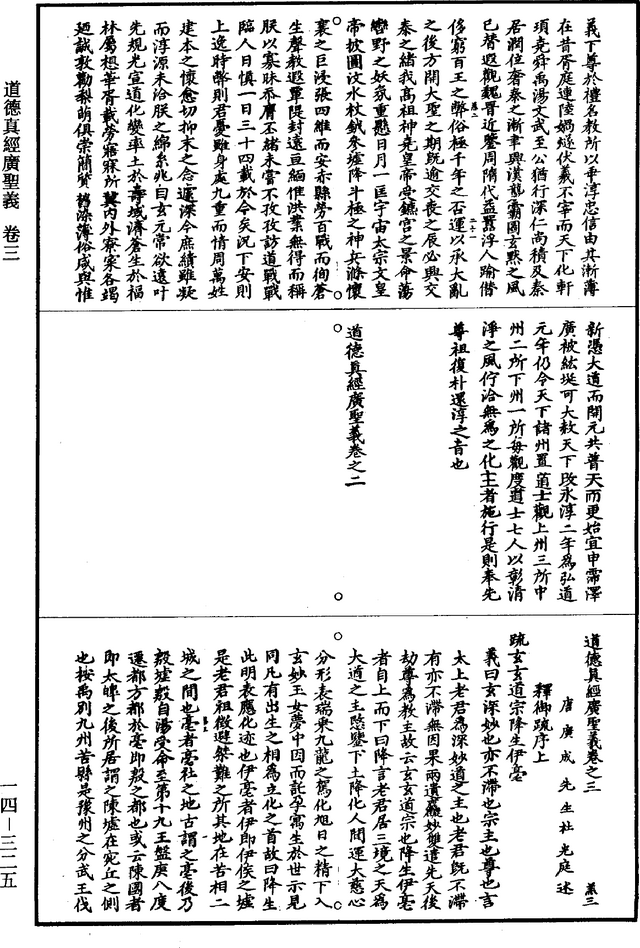 道德真經廣聖義　卷三
義下尊於禮名教所以興淳忠信由其漸薄
在昔胥庭連陸媧燧伏羲不宰而天下化軒
頊堯舜禹湯文武至公猶行深仁尚積及秦
居潤位奢泰之漸聿興漢龍霸圖玄默之風
已替遐觀魏晉近鑒周隋代益囂浮人踰僭
侈窮百王之弊俗極千年之否運以承大亂
之後方開大聖之期既逾交喪之辰必興交
泰之緒我高祖神堯皇帝受籙宮之景命蕩
巒野之妖氛重懸日月一匡宇宙太宗文皇
帝披圖汶水杖鉞參墟降斗極之神兵滌懷
襄之巨浸張四維而安赤縣勞百戰而徇蒼
生聲教遐覃隄封遠亘緬惟洪業無得而稱
朕以寡昧忝膺丕緒未嘗不孜孜訪道戰戰
臨人日慎一日三十四載於今矣況下安則
上逸時弊則君憂雖身處九重而情周萬姓
建本之懷愈切抑末之念逾深今庶績雖凝
而淳源未洽朕之綿系兆自玄元常欲遠叶
先規光宣道化變率土於壽域濟蒼生於福
林屬想華胥載勞寤寐所冀內外寮寀各竭
廼誠敦勸黎萌俱崇簡質滌薄俗咸與惟
新憑大道而開元共普天而更始宜申霈澤
廣被紘埏可大赦天下改永淳二年為弘道
元年仍令天下諸州置道士觀上州三所中
州二所下州一所每觀度道士七人以彰清
淨之風佇洽無為之化主者施行是則奉先
尊祖復朴還淳之旨也
道德真經廣聖義卷之二
道德真經廣聖義卷之三　羔三
唐廣成先生杜光庭述
釋御疏序上
疏玄玄道宗降生伊亳
義曰玄深妙也亦不滯也宗主也尊也言
太上老君為深妙道之主也老君既不滯
有亦不滯無因果兩遺麤妙雙遣先天後
劫尊為教主故云玄玄道宗也降生伊亳
者自上而下曰降言老君居三境之天為
大道之主愍鑒下土降化人間運大慈心
分形表瑞乘九龍之駕化旭日之精下入
玄妙玉女夢中因而託孕寓生於世示見
同凡有出生之相為立化之首故曰降生
此明表應化迹也伊亳者伊即伊俟之墟
是老君祖微避桀難之所其地在苦相二
城之間也亳者亳社之地古謂之亳後乃
殷墟殷自湯受命至第十九王盤庚八度
遷都方都於亳即殷之都也或云陳國者
即太皥之後所居謂之陳墟在宛丘之側
也按禹別九州苦縣是豫州之分武王伐
一四—三二五